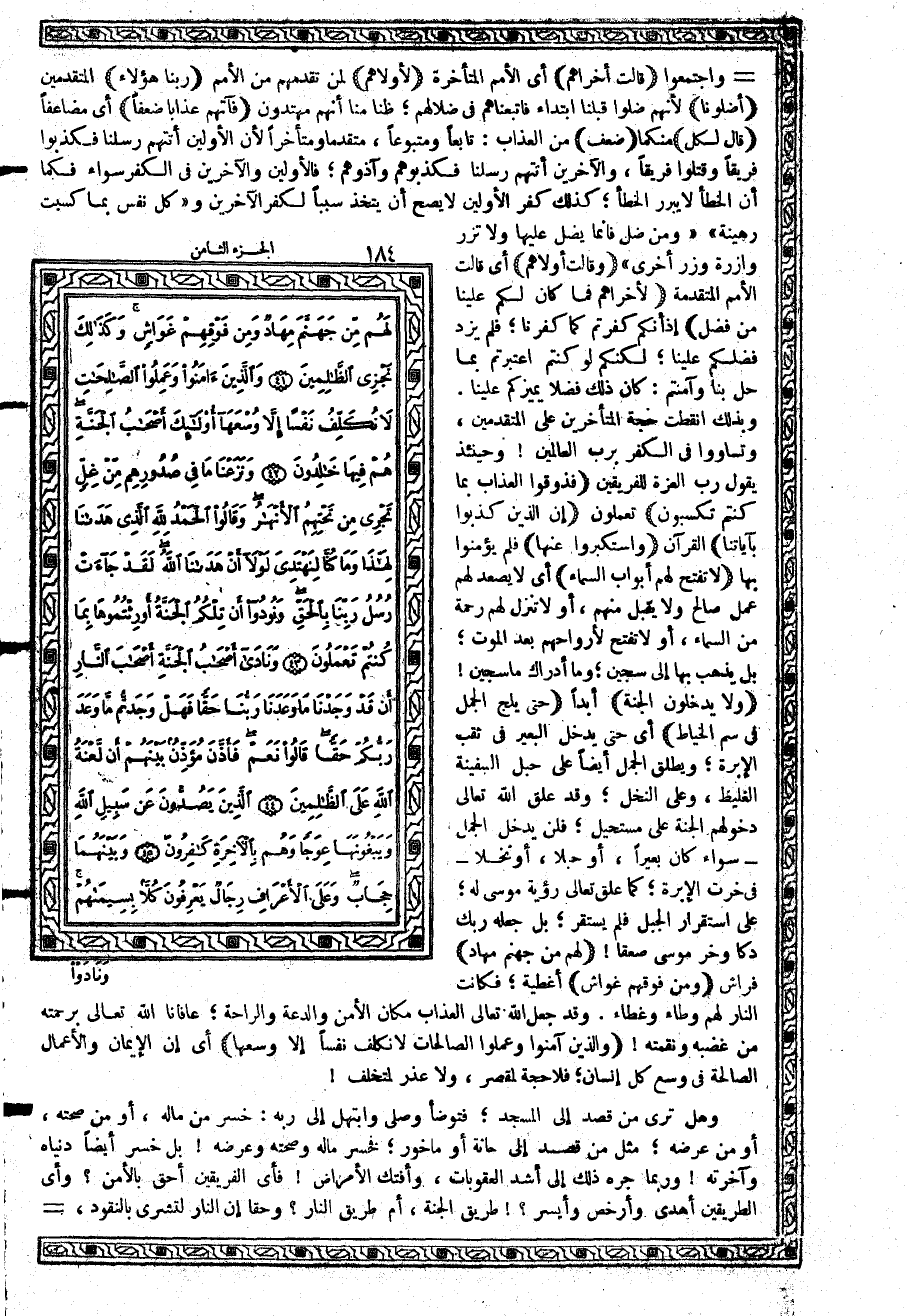 = واجتمعوا (قالت أخراهم) أى الأمم المتأخرة (لأولاهم) لمن تقدمهم من الأمم (ربنا هؤلاء) المتقدمين
(أضلونا) لأنهم ضلوا قبلنا ابتداء فاتبعناهم فى ضلالهم ؛ ظنا منا أنهم مهتدون (فآتهم عذابا ضعفاً) أى مضاعفاً
(قال لكل) منكما (ضعف) من العذاب : تابعاً ومتبوعاً ، متقدما ومتأخراً لأن الأولين أتتهم رسلنا فكذبوا
فريقاً وقتلوا فريقاً ، والآخرين أتتهم رسلنا فكذبوهم وآذوهم ؛ فالأولين والآخرين فى الكفر سواء فكما
أن الخطأ لايبرر الخطأ ؛ كذلك كفر الأولين لايصح أن يتخذ سبباً لكفر الآخرين و« كل نفس بما كسبت
رهينة» « ومن ضل فإنما يضل عليها ولا تزر
وازرة وزر أخرى» (وقالت أولاهم) أى قالت
الأمم المتقدمة ( لأخراهم فما كان لكم علينا
من فضل) إذ أنكم كفرتم كما كفرنا ؛ فلم يزد
فضلكم علينا ؛ لكنكم لو كنتم اعتبرتم بما
حل بنا وآمنتم : كان ذلك فضلا يميزكم علينا .
وبذلك انقطت حجة المتأخرين على المتقدمين ،
وتساووا فى الكفر برب العالمين ! وحينئذ
يقول رب العزة للفريقين (فذوقوا العذاب بما
كنتم تكسبون) تعملون (إن الذين كذبوا
بآياتنا) القرآن (واستكبروا عنها) فلم يؤمنوا
بها (لا تفتح لهم أبواب السماء) أى لا يصعد لهم
عمل صالح ولا يقبل منهم ، أو لاتنزل لهم رحمة
من السماء ، أو لاتفتح لأرواحهم بعد الموت ؛
بل يذهب بها إلى سجين ؛ وما أدراك ماسجين !
(ولا يدخلون الجنة) أبداً (حتى يلج الجمل
فى سم الخياط) أى حتى يدخل البعير فى ثقب
الإبرة ؛ ويطلق الجمل أيضاً على حبل السفينة
الغليظ ، وعلى النخل ؛ وقد علق الله تعالى
دخولهم الجنة على مستحيل ؛ فلن يدخل الجمل
ـ سواء كان بعيراً ، أو حبلا ، أو نخلا ـ
فى خرت الإبرة ؛ كما علق تعالى رؤية موسى له ؛
على استقرار الجبل فلم يستقر ؛ بل جعله ربك
دكا وخر موسى صعقا ! (لهم من جهنم مهاد)
فراش (ومن فوقهم غواش) أغطية ؛ فكانت
الجزء الثامن ١٨٤
لَهُم مِّن جَهَنَّمَ مِهَادٌ وَمِن فَوْقِهِمْ غَوَاشٍ ۚ وَكَذَٰلِكَ
نَجْزِى ٱلظَّٰلِمِينَ ٤١ وَٱلَّذِينَ ءَامَنُوا۟ وَعَمِلُوا۟ ٱلصَّٰلِحَٰتِ
لَا نُكَلِّفُ نَفْسًا إِلَّا وُسْعَهَآ أُو۟لَٰٓئِكَ أَصْحَٰبُ ٱلْجَنَّةِ ۖ
هُمْ فِيهَا خَٰلِدُونَ ٤٢ وَنَزَعْنَا مَا فِى صُدُورِهِم مِّنْ غِلٍّ
تَجْرِى مِن تَحْتِهِمُ ٱلْأَنْهَٰرُ ۖ وَقَالُوا۟ ٱلْحَمْدُ لِلَّهِ ٱلَّذِى هَدَىٰنَا
لِهَٰذَا وَمَا كُنَّا لِنَهْتَدِىَ لَوْلَآ أَنْ هَدَىٰنَا ٱللَّهُ ۖ لَقَدْ جَآءَتْ
رُسُلُ رَبِّنَا بِٱلْحَقِّ ۖ وَنُودُوٓا۟ أَن تِلْكُمُ ٱلْجَنَّةُ أُورِثْتُمُوهَا بِمَا
كُنتُمْ تَعْمَلُونَ ٤٣ وَنَادَىٰٓ أَصْحَٰبُ ٱلْجَنَّةِ أَصْحَٰبَ ٱلنَّارِ
أَن قَدْ وَجَدْنَا مَا وَعَدَنَا رَبُّنَا حَقًّا فَهَلْ وَجَدتُّم مَّا وَعَدَ
رَبُّكُمْ حَقًّا ۖ قَالُوا۟ نَعَمْ ۚ فَأَذَّنَ مُؤَذِّنٌۢ بَيْنَهُمْ أَن لَّعْنَةُ
ٱللَّهِ عَلَى ٱلظَّٰلِمِينَ ٤٤ ٱلَّذِينَ يَصُدُّونَ عَن سَبِيلِ ٱللَّهِ
وَيَبْغُونَهَا عِوَجًا وَهُم بِٱلْءَاخِرَةِ كَٰفِرُونَ ٤٥ وَبَيْنَهُمَا
حِجَابٌ ۚ وَعَلَى ٱلْأَعْرَافِ رِجَالٌ يَعْرِفُونَ كُلًّۢا بِسِيمَىٰهُمْ ۚ
وَنَادَوْا۟
النار لهم وطاء وغطاء . وقد جعل الله تعالى العذاب مكان الأمن والدعة والراحة ؛ عافانا الله تعالى برحمته
من غضبه ونقمته ! (والذين آمنوا وعملوا الصالحات لانكلف نفساً إلا وسعها) أى إن الإيمان والأعمال
الصالحة فى وسع كل إنسان؛ فلاحجة لمقصر ، ولا عذر لمتخلف !
وهل ترى من قصد إلى المسجد ؛ فتوضأ وصلى وابتهل إلى ربه : خسر من ماله ، أو من صحته ،
أو من عرضه ؛ مثل من قصد إلى حانة أو ماخور ؛ فخسر ماله وصحته وعرضه ! بل خسر أيضاً دنياه
وآخرته ! وربما جره ذلك إلى أشد العقوبات ، وأفتك الأمراض ! فأى الفريقين أحق بالأمن ؟ وأى
الطريقين أهدى وأرخص وأيسر ؟! طريق الجنة ، أم طريق النار ؟ وحقا إن النار لتشرى بالنقود ، =